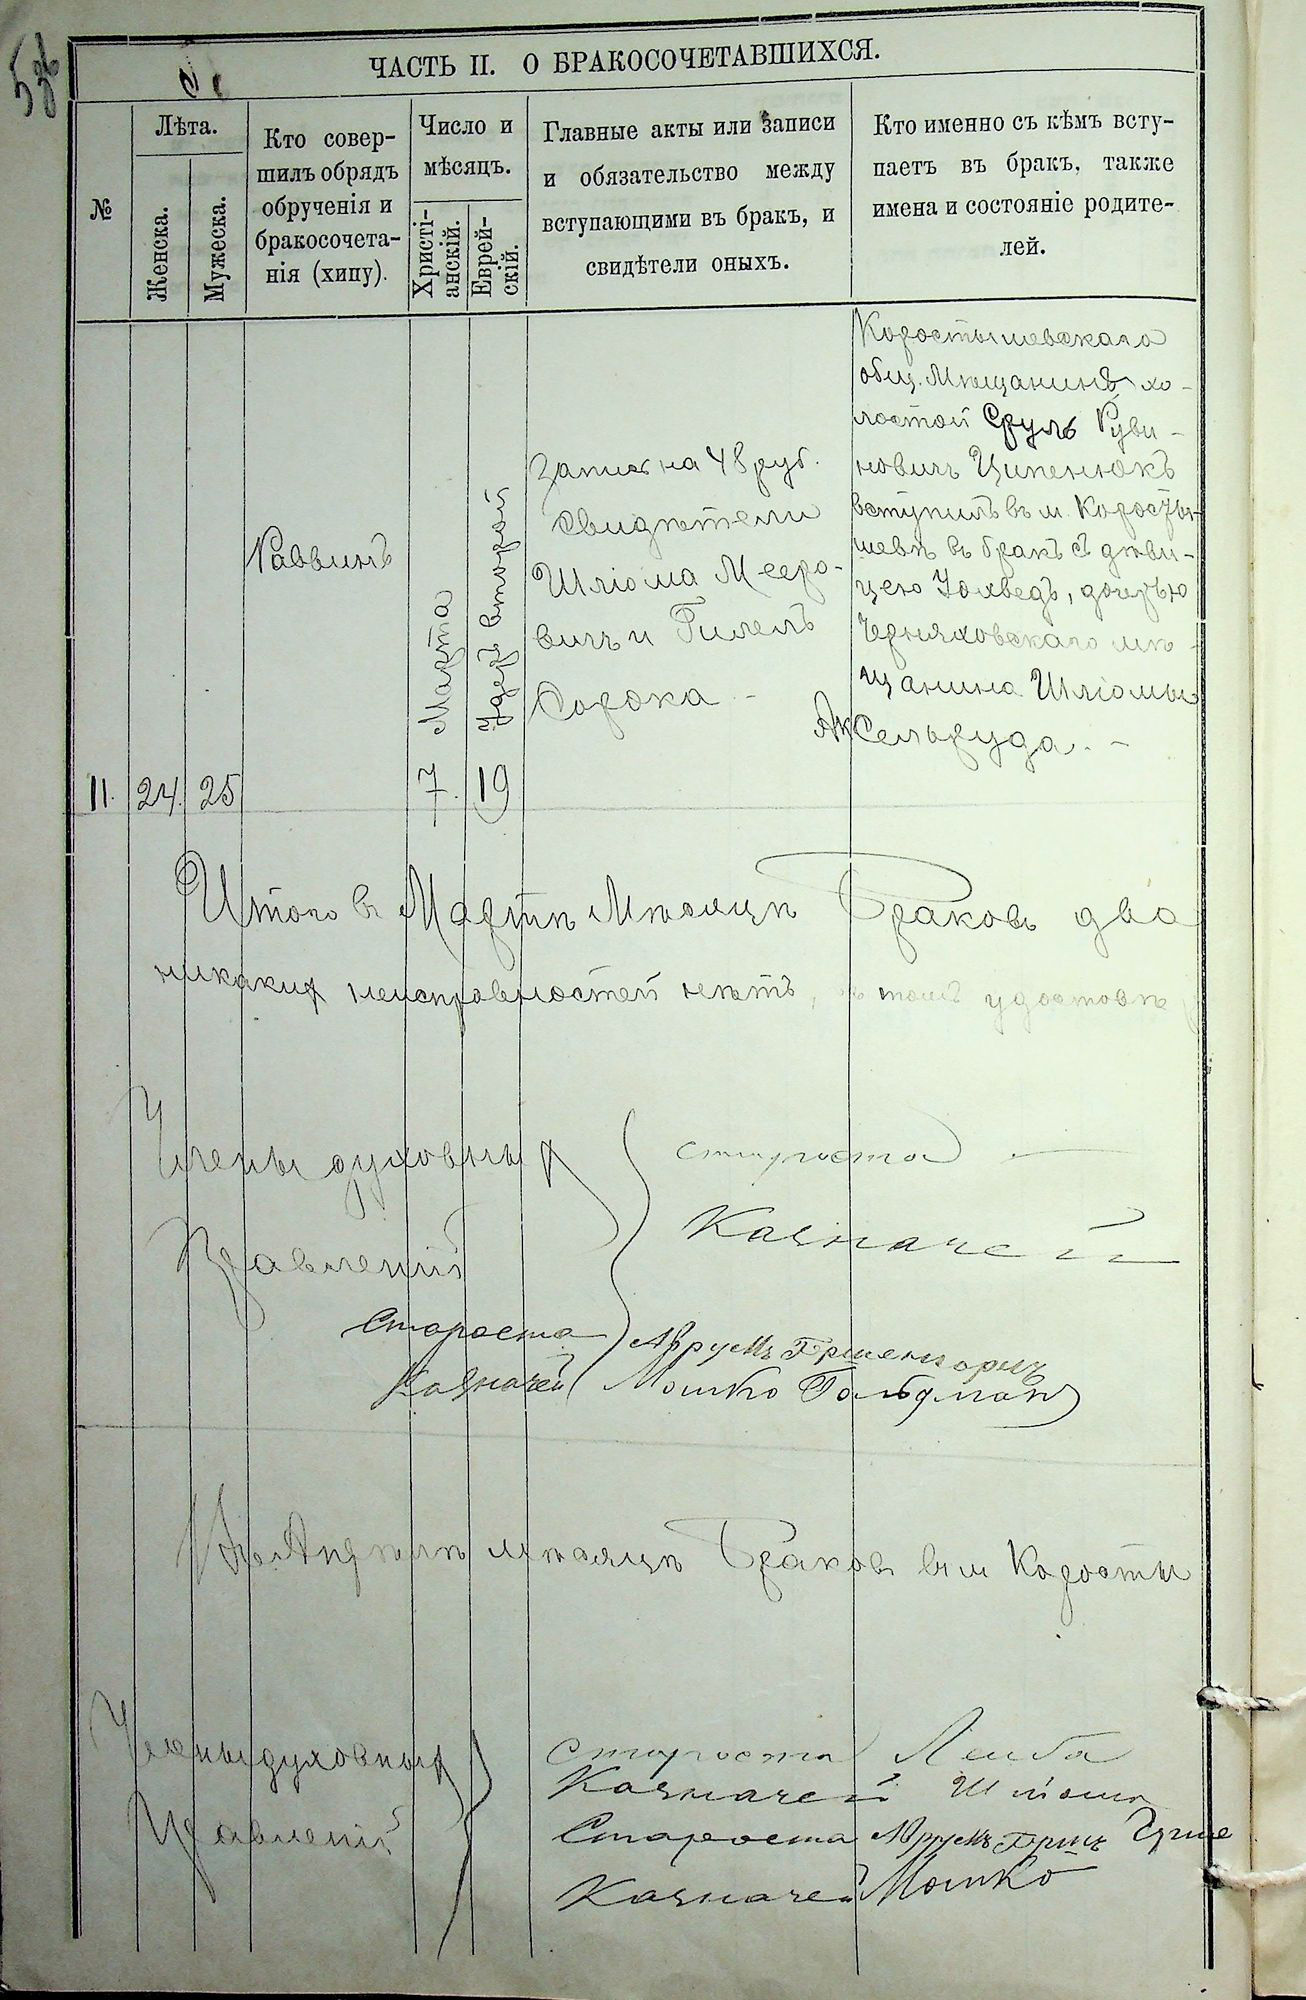 ЧАСТЬ II. О БРАКОСОЧЕТАВШИХСЯ.
№
Лѣта.
Женска.
Мужеска.
Кто совер-
шилъ обрядъ
обрученія и
бракосочета-
нія (хипу).
Число и
мѣсяцъ.
Христі-
анскій.
Еврей-
скій.
Главные акты или записи
и обязательство между
вступающими въ бракъ, и
свидѣтели оныхъ.
Кто именно съ кѣмъ всту-
паетъ въ бракъ, также
имена и состояніе родите-
лей.
11.
24.
25
Раввинъ
Марта
7
Удеръ второй
19
Запись на 48 руб.
Свидѣтели
Шліома Мееро-
вичъ и Гилель
Сорока
Коростышевскаго
общ. Мѣщанинъ хо-
лостой Сруль Руви-
новичъ Ципенюкъ
вступилъ въ м. Коросты-
шевѣ въ бракъ съ дѣви-
цею Іохведъ, дочерью
Черняховскаго мѣ-
щанина Шліомы
Аксельруда.
Итого въ Мартѣ Мѣсяцѣ Браковъ два
никакихъ неисправностей нѣтъ, въ томъ удостовѣ
Члены духовныхъ
Правленій
Староста
Казначей
Староста Аврумъ
Казначей Мошко Гольдман
Въ Апрѣлѣ мѣсяцѣ Браковъ въ м Коросты
Члены духовныхъ
Правленій
Староста Лейба
Казначей Шліома
Староста Аврумъ Гершъ
Казначей Мошко